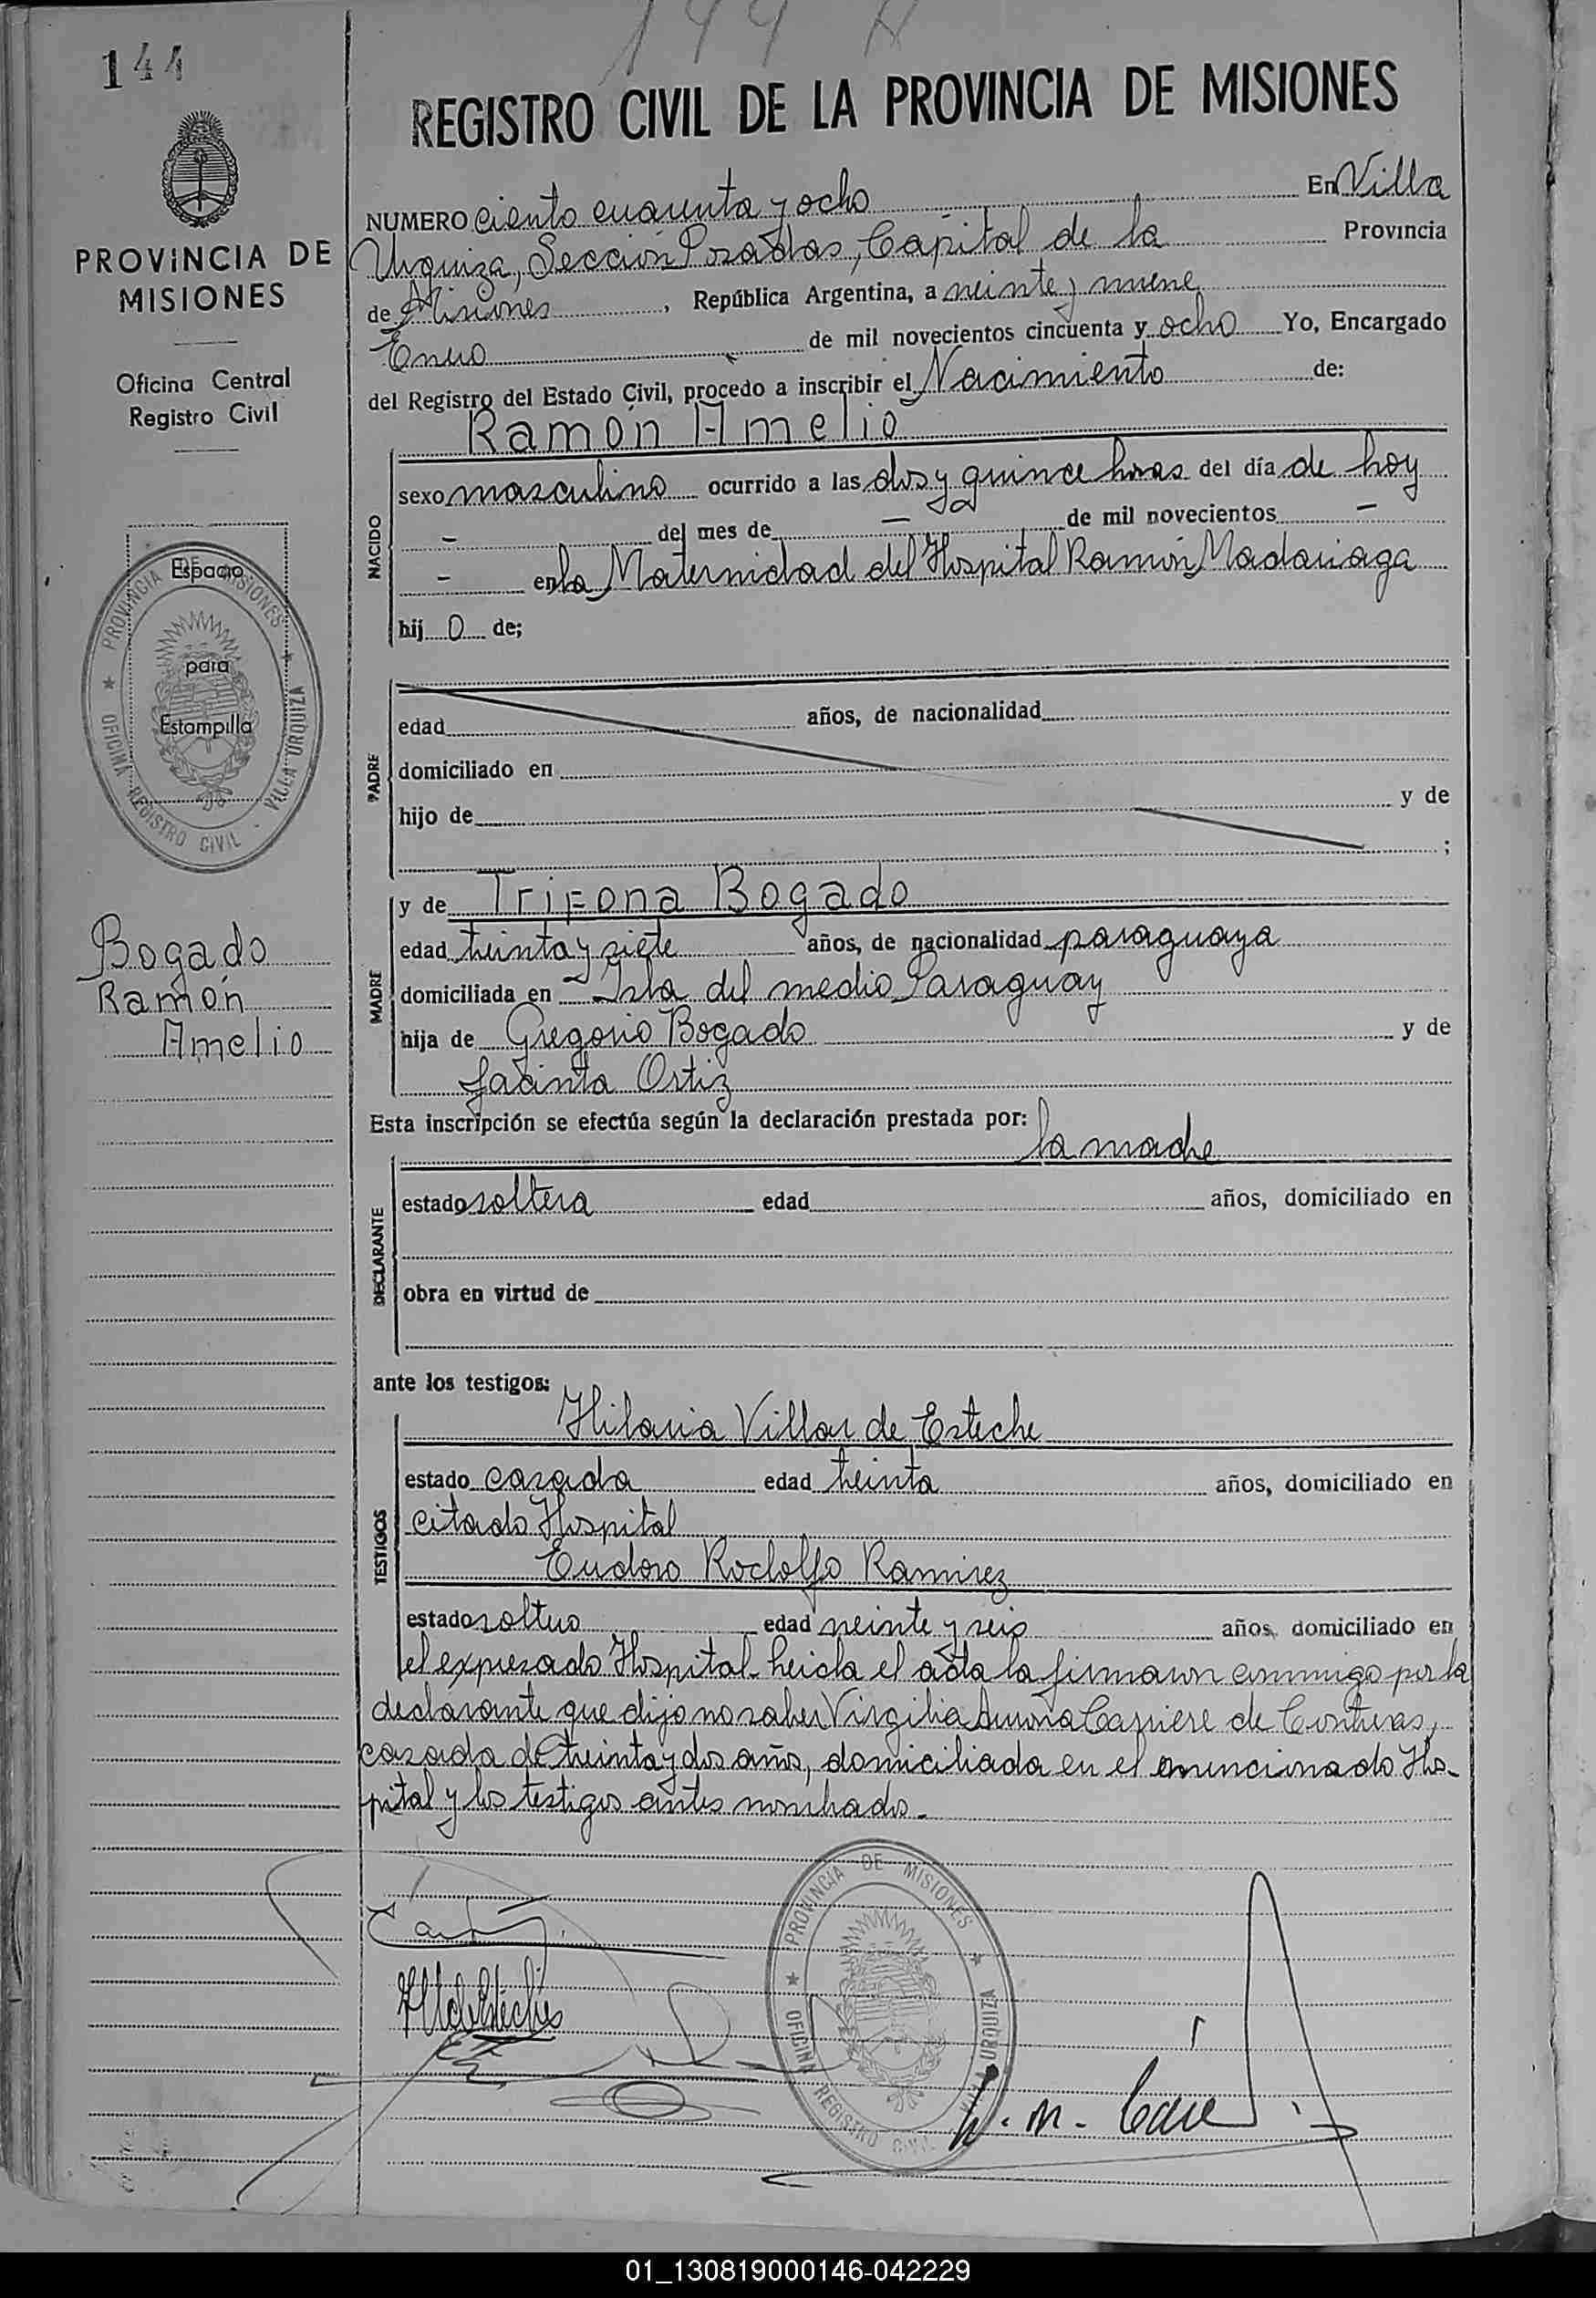 144
144
REGISTRO CIVIL DE LA PROVINCIA DE MISIONES
PROVINCIA DE
MISIONES
Oficina Central
Registro Civil
Espacio
para
Estampilla
PROVINCIA DE MISIONES
OFICINA REGISTRO CIVIL - VILLA URQUIZA
Bogado
Ramón
Amelio
NUMERO ciento cuarenta y ocho En Villa
Urquiza, Sección Posadas, Capital de la Provincia
de Misiones, República Argentina, a veinte y nueve
Enero de mil novecientos cincuenta y ocho Yo, Encargado
del Registro del Estado Civil, procedo a inscribir el Nacimiento de:
Ramón Amelio
NACIDO
sexo masculino ocurrido a las dos y quince horas del día de hoy
- del mes de - de mil novecientos -
- en la Maternidad del Hospital Ramón Madariaga
hij o de;
PADRE
edad años, de nacionalidad
domiciliado en
hijo de y de
;
MADRE
y de Trifona Bogado
edad treinta y siete años, de nacionalidad paraguaya
domiciliada en Isla del medio Paraguay
hija de Gregorio Bogado y de
Jacinta Ortiz
Esta inscripción se efectúa según la declaración prestada por:
la madre
DECLARANTE
estado soltera edad años, domiciliado en
obra en virtud de
ante los testigos:
Hilaria Villar de Esteche
TESTIGOS
estado casada edad treinta años, domiciliado en
citado Hospital
Eudoro Rodolfo Ramirez
estado soltero edad veinte y seis años, domiciliado en
el expresado Hospital. Leida el acta la firmaron conmigo por la
declarante que dijo no saber Virgilia Carriere de Contreras,
casada de treinta y dos años, domiciliada en el mencionado Hos-
pital y los testigos antes nombrados.
PROVINCIA DE MISIONES
OFICINA REGISTRO CIVIL VILLA URQUIZA
01_130819000146-042229